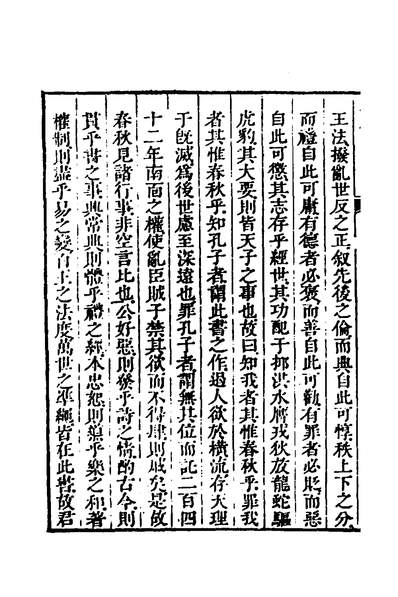 王法撥亂世反之正叙先後之倫而典自此可惇秩上下之分
而禮自此可庸有德者必褒而善自此可勸有罪者必貶而惡
自此可懲其志存乎經世其功配于抑洪水膺戎狄放龍蛇驅
虎豹其大要則皆天子之事也故曰知我者其惟春秋乎罪我
者其惟春秋乎知孔子者謂此書之作遏人欲於橫流存天理
于旣滅爲後世慮至深遠也罪孔子者謂無其位而託二百四
十二年南面之權使亂臣賊子禁其欲而不得肆則戚矣是故
春秋見諸行事非空言比也公好惡則發乎詩之情酌古今則
貫乎書之事興常典則體乎禮之經本忠恕則導乎樂之和著
權制則盡乎易之變百王之法度萬世之準繩皆在此書故君